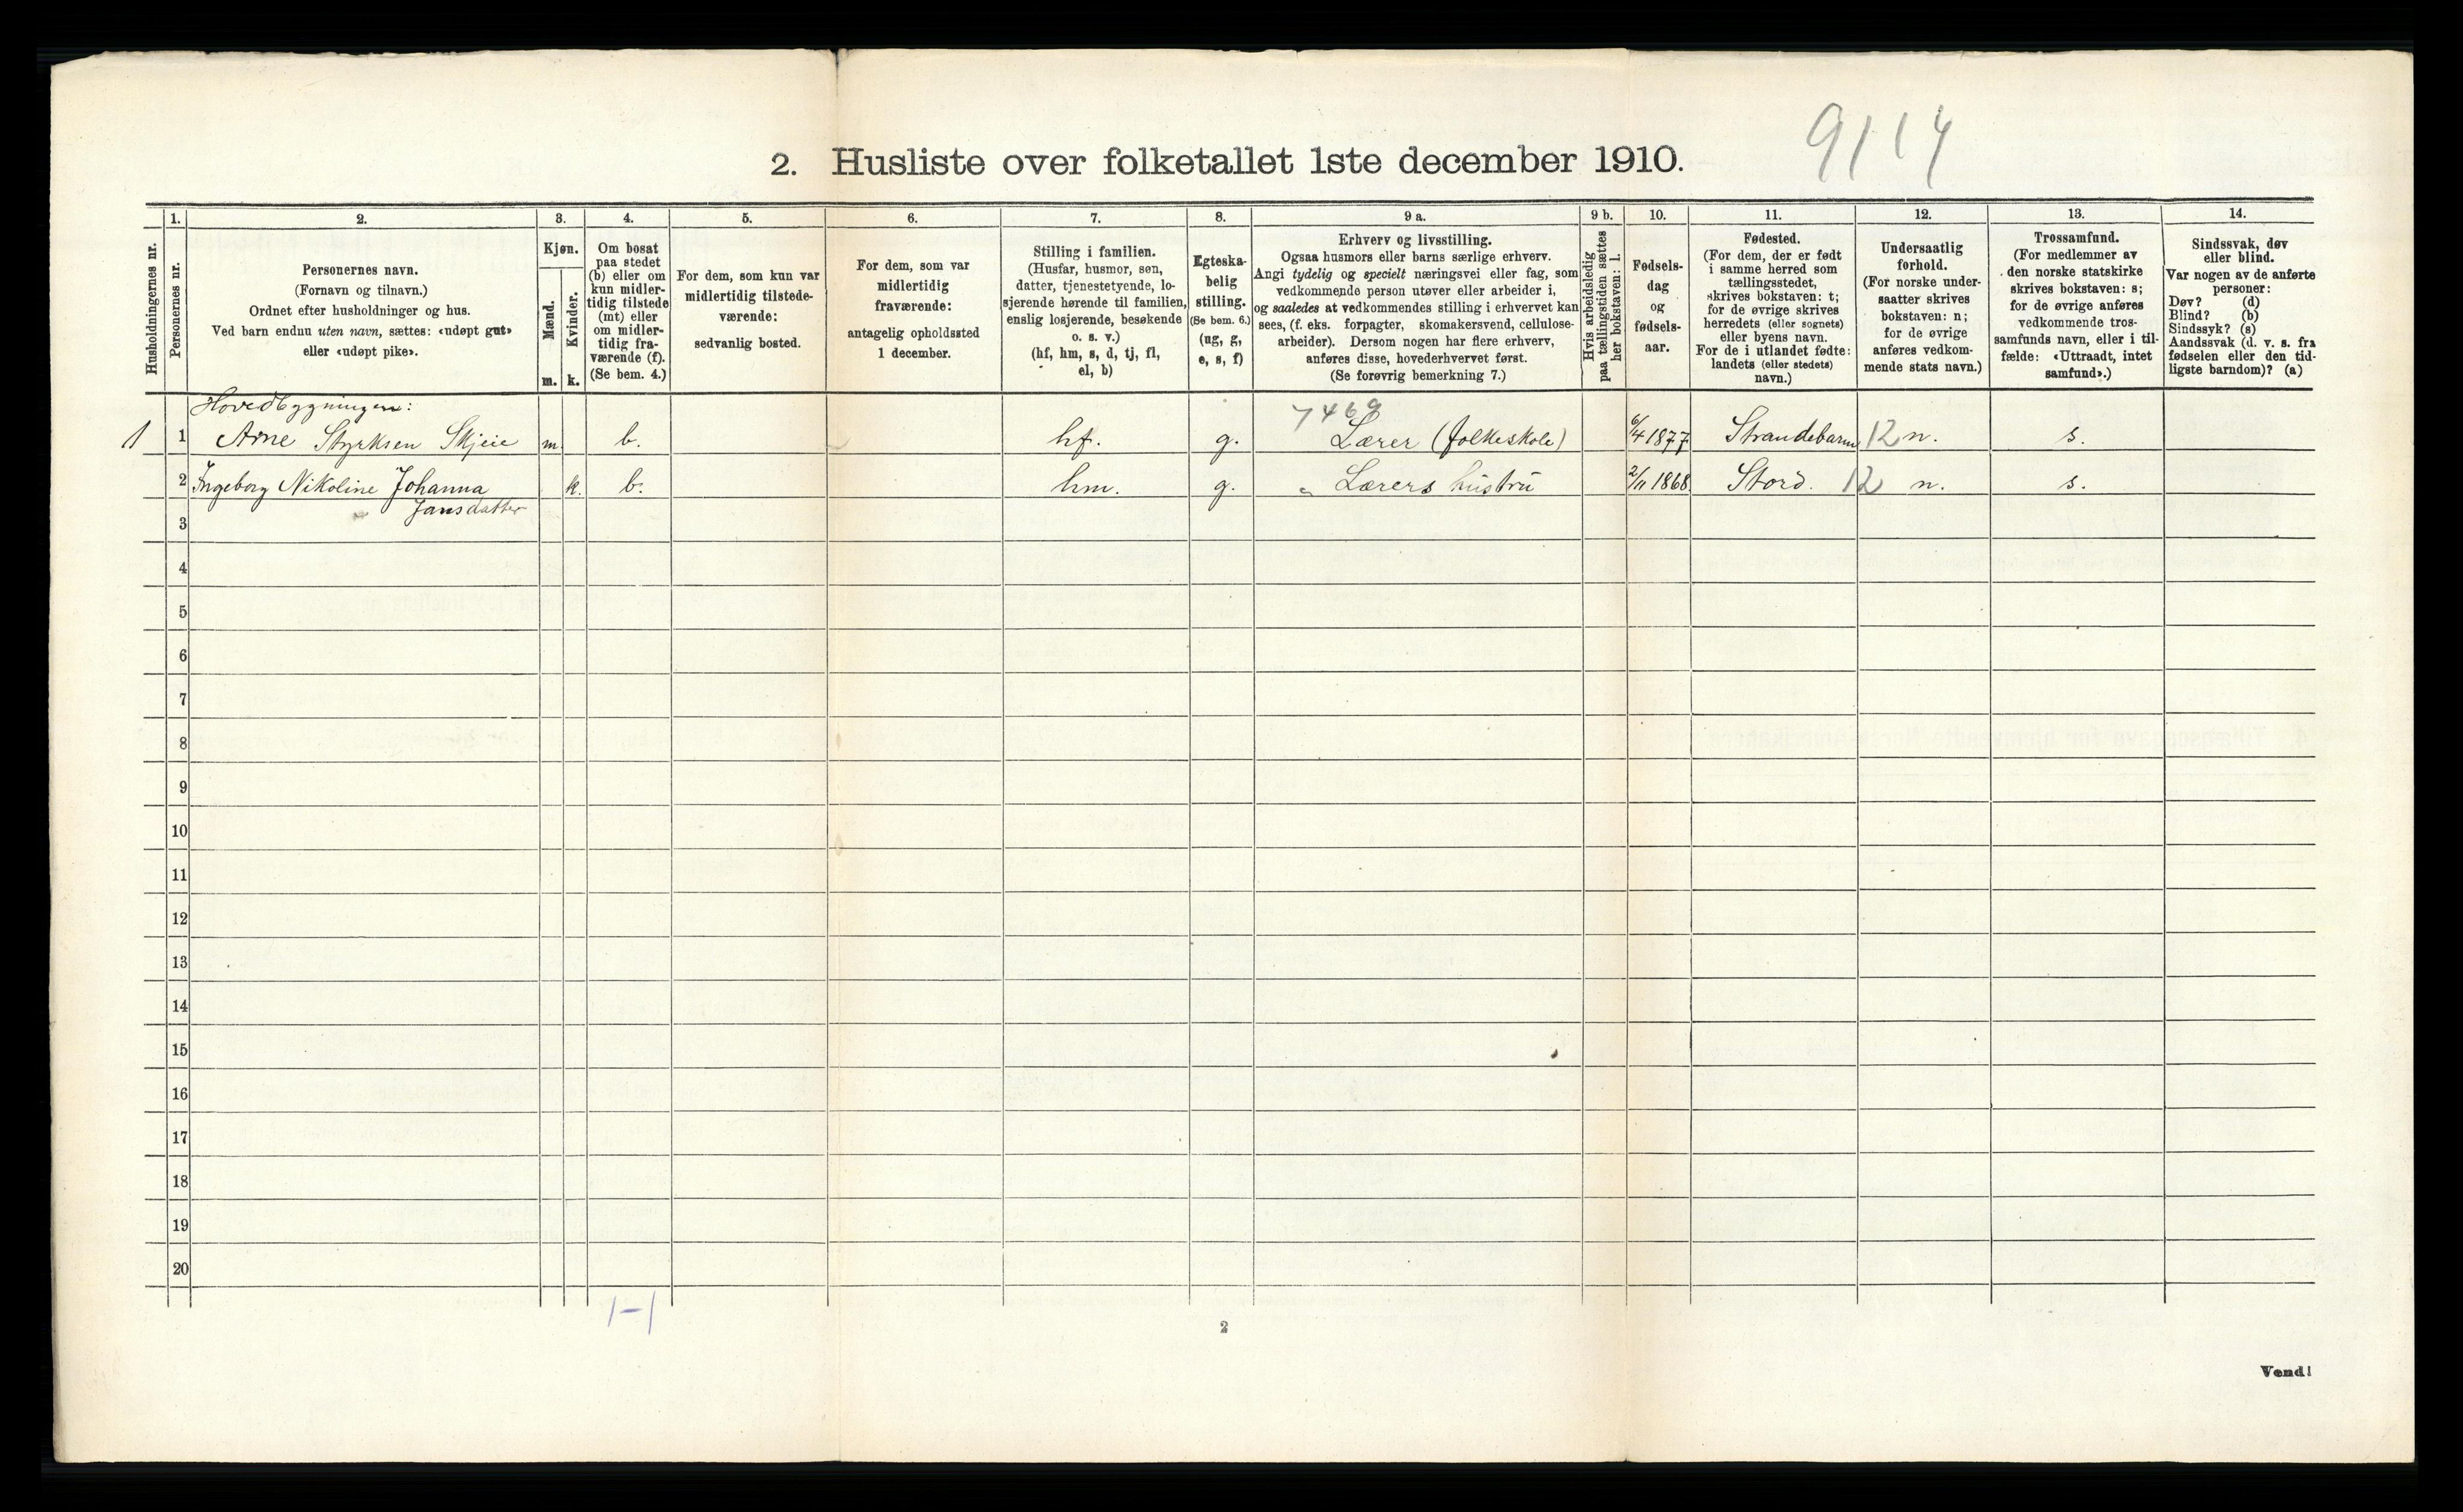 9114
2. Husliste over folketallet 1ste december 1910.
Husholdningernes nr.
1.
Personernes nr.
2.
Personernes navn.
(Fornavn og tilnavn.)
Ordnet efter husholdninger og hus.
Ved barn endnu uten navn, sættes: «udøpt gut»
eller «udøpt pike».
3.
Kjøn.
Mænd.
m.
Kvinder.
k.
4.
Om bosat
paa stedet
(b) eller om
kun midler-
tidig tilstede
(mt) eller
om midler-
tidig fra-
værende (f).
(Se bem. 4.)
5.
For dem, som kun var
midlertidig tilstede-
værende:
sedvanlig bosted.
6.
For dem, som var
midlertidig
fraværende:
antagelig opholdssted
1 december.
7.
Stilling i familien.
(Husfar, husmor, søn,
datter, tjenestetyende, lo-
sjerende hørende til familien,
enslig losjerende, besøkende
o. s. v.)
(hf, hm, s, d, tj, fl,
el, b)
8.
Egteska-
belig
stilling.
(Se bem. 6.)
(ug, g,
e, s, f)
9 a.
Erhverv og livsstilling.
Ogsaa husmors eller barns særlige erhverv.
Angi tydelig og specielt næringsvei eller fag, som
vedkommende person utøver eller arbeider i,
og saaledes at vedkommendes stilling i erhvervet kan
sees, (f. eks. forpagter, skomakersvend, cellulose-
arbeider). Dersom nogen har flere erhverv,
anføres disse, hovederhvervet først.
(Se forøvrig bemerkning 7.)
9 b.
Hvis arbeidsledig
paa tællingstiden sættes
her bokstaven: l.
10.
Fødsels-
dag
og
fødsels-
aar.
11.
Fødested.
(For dem, der er født
i samme herred som
tællingsstedet,
skrives bokstaven: t;
for de øvrige skrives
herredets (eller sognets)
eller byens navn.
For de i utlandet fødte:
landets (eller stedets)
navn.)
12.
Undersaatlig
forhold.
(For norske under-
saatter skrives
bokstaven: n;
for de øvrige
anføres vedkom-
mende stats navn.)
13.
Trossamfund.
(For medlemmer av
den norske statskirke
skrives bokstaven: s;
for de øvrige anføres
vedkommende tros-
samfunds navn, eller i til-
fælde: «Uttraadt, intet
samfund».)
14.
Sindssvak, døv
eller blind.
Var nogen av de anførte
personer:
Døv? (d)
Blind? (b)
Sindssyk? (s)
Aandssvak (d. v. s. fra
fødselen eller den tid-
ligste barndom)? (a)
Hovedbygningen:
7469
1 1 Arne Styrksen Skjeie m. b. hf. g. Lærer (folkeskole) 6/4 1877 Strandebarm 12 n. s.
2 Ingeborg Nikoline Johanna k. b. hm. g. Lærers hustru 2/11 1868 Stord. 12 n. s.
Jansdatter
3
4
5
6
7
8
9
10
11
12
13
14
15
16
17
18
19
20
1-1
2
Vend!